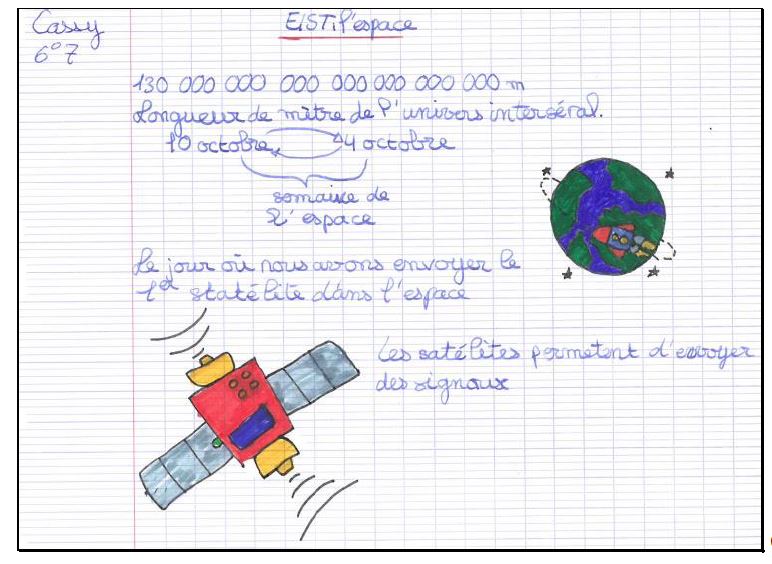 Cassy
6°7
EISTI l'espace
130 000 000 000 000 000 000 000 m
Longueur de mètre de l'univers interséral.
10 octobre 4 octobre
semaine de
l'espace
Le jour où nous avons envoyer le
1er statélite dans l'espace
Les satélites permetent d'envoyer
des signaux